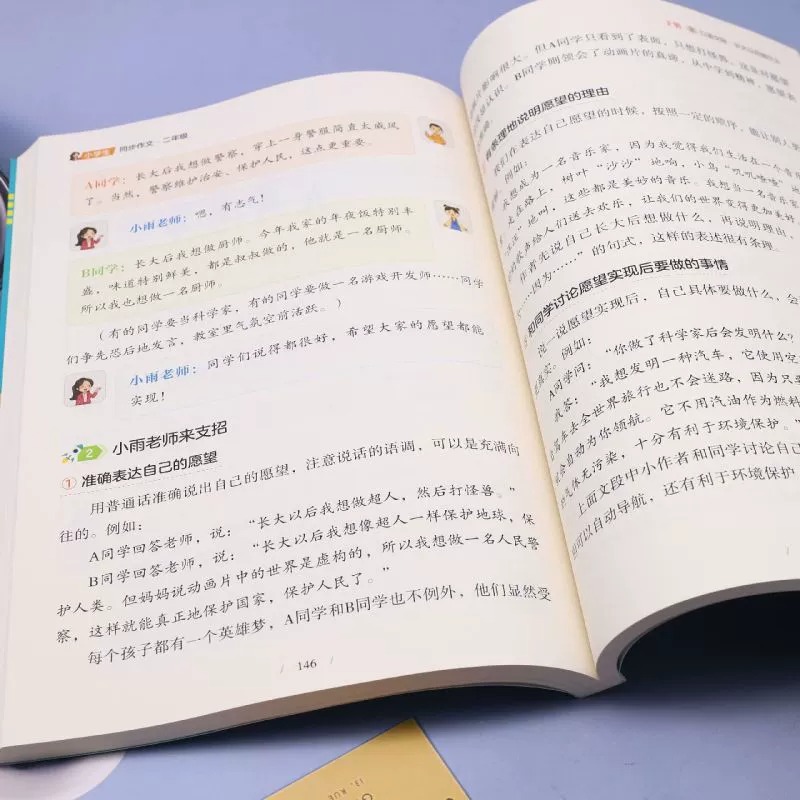 小学生 同步作文·二年级
A同学：长大后我想做警察，穿上一身警服简直太威风
了。当然，警察维护治安、保护人民，这点更重要。
小雨老师：嗯，有志气！
B同学：长大后我想做厨师。今年我家的年夜饭特别丰
盛，味道特别鲜美，都是叔叔做的，他就是一名厨师。
所以我也想做一名厨师。
（有的同学要当科学家，有的同学要做一名游戏开发师……同学
们争先恐后地发言，教室里气氛空前活跃。）
小雨老师：同学们说得都很好，希望大家的愿望都能
实现！
2 小雨老师来支招
① 准确表达自己的愿望
用普通话准确说出自己的愿望，注意说话的语调，可以是充满向
往的。例如：
A同学回答老师，说：“长大以后我想做超人，然后打怪兽。”
B同学回答老师，说：“长大以后我想像超人一样保护地球，保
护人类。但妈妈说动画片中的世界是虚构的，所以我想做一名人民警
察，这样就能真正地保护国家，保护人民了。”
每个孩子都有一个英雄梦，A同学和B同学也不例外，他们显然受
146
片影响很大。但A同学只看到了表面，只想打怪兽，这是对愿望
认识。B同学则领会了动画片的真谛，从中学到精神，愿望表
有条理地说明愿望的理由
我们在表达自己愿望的时候，按照一定的顺序，能让别人
例如：
我想成为一名音乐家，因为我觉得我们生活在一个音乐
走在路上，树叶“沙沙”地响，小鸟“叽叽喳喳”地
地叫，这些都是美妙的音乐。我想当一名音乐家
给人们送去欢乐，让我们的世界变得更加美好
作者先说自己长大后想做什么，再说明理由，
……因为……”的句式，这样的表述很有条理。
和同学讨论愿望实现后要做的事情
说一说愿望实现后，自己具体要做什么，会
真实。例如：
A同学问：“你做了科学家后会发明什么？
我答：“我想发明一种汽车，它使用
车去全世界旅行也不会迷路，因为只要
会自动为你领航。它不用汽油作为燃料
气体无污染，十分有利于环境保护。”
上面文段中小作者和同学讨论自己
可以自动导航，还有利于环境保护